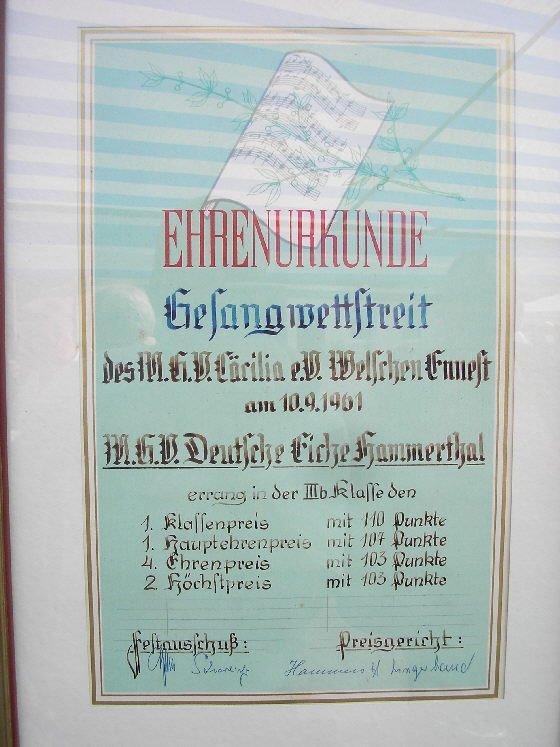 EHRENURKUNDE
Gesangwettstreit
des M.G.V. Cäcilia e.V. Welschen Ennest
am 10.9.1961
M.G.V. Deutsche Eiche Hammerthal
errang in der IIIb. Klasse den
1. Klassenpreis mit 110 Punkte
1. Hauptehrenpreis mit 107 Punkte
4. Ehrenpreis mit 103 Punkte
2. Höchstpreis mit 103 Punkte
Festausschuß: Preisgericht: